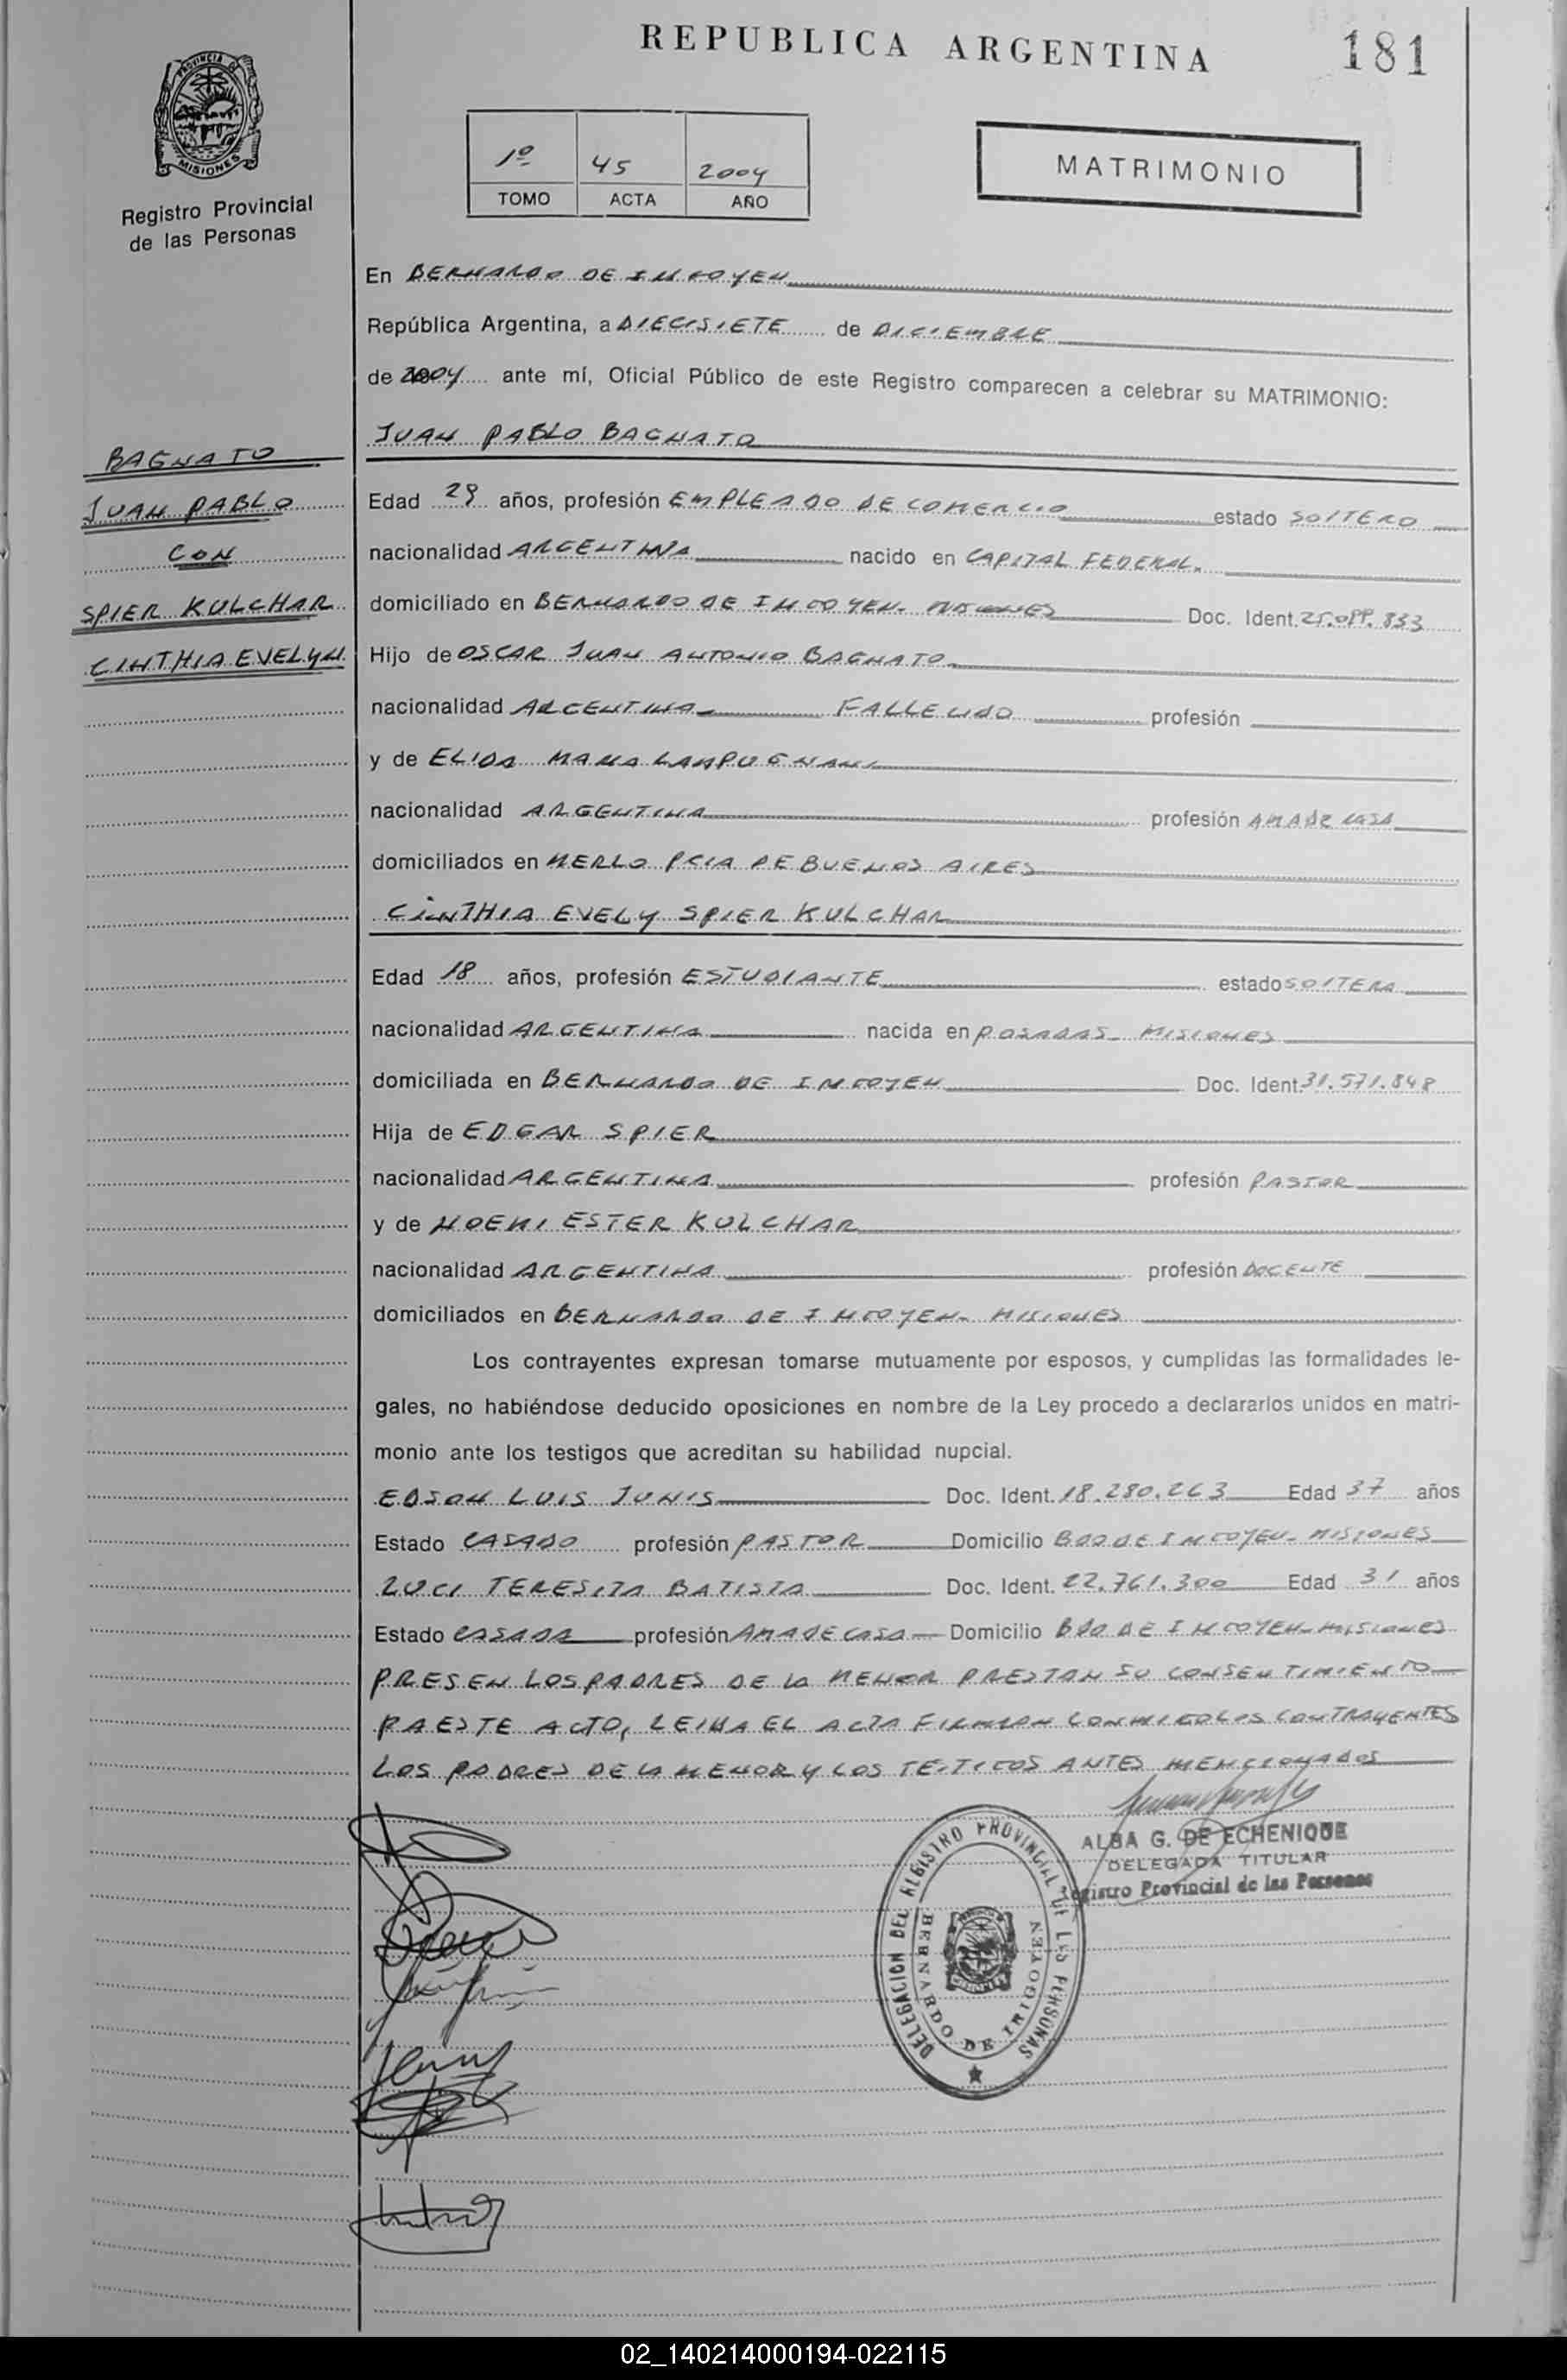 REPUBLICA ARGENTINA
181
PROVINCIA DE
MISIONES
Registro Provincial
de las Personas
1º 45 2004
TOMO ACTA AÑO
MATRIMONIO
En BERNARDO DE IRIGOYEN
República Argentina, a DIECISIETE de DICIEMBRE
de 2004 ante mí, Oficial Público de este Registro comparecen a celebrar su MATRIMONIO:
JUAN PABLO BAGNATO
BAGNATO
JUAN PABLO
CON
SPIER KULCHAR
CINTHIA EVELYN
Edad 29 años, profesión EMPLEADO DE COMERCIO estado SOLTERO
nacionalidad ARGENTINA nacido en CAPITAL FEDERAL.
domiciliado en BERNARDO DE IRIGOYEN- MISIONES Doc. Ident. 833
Hijo de OSCAR JUAN ANTONIO BAGNATO
nacionalidad ARGENTINA FALLECIDO profesión
y de ELIDA MARIA LAMPUGNANI
nacionalidad ARGENTINA profesión AMA DE CASA
domiciliados en MERLO PCIA DE BUENOS AIRES
CINTHIA EVELY SPIER KULCHAR
Edad 18 años, profesión ESTUDIANTE estado SOLTERA
nacionalidad ARGENTINA nacida en POSADAS- MISIONES
domiciliada en BERNARDO DE IRIGOYEN Doc. Ident. 31.571.848
Hija de EDGAR SPIER
nacionalidad ARGENTINA profesión PASTOR
y de NOEMI ESTER KULCHAR
nacionalidad ARGENTINA profesión DOCENTE
domiciliados en BERNARDO DE IRIGOYEN- MISIONES
Los contrayentes expresan tomarse mutuamente por esposos, y cumplidas las formalidades le-
gales, no habiéndose deducido oposiciones en nombre de la Ley procedo a declararlos unidos en matri-
monio ante los testigos que acreditan su habilidad nupcial.
EDSON LUIS JUNIS Doc. Ident. 18.280.263 Edad 37 años
Estado CASADO profesión PASTOR Domicilio BDO DE IRIGOYEN- MISIONES
LUCI TERESITA BATISTA Doc. Ident. 22.761.300 Edad 31 años
Estado CASADA profesión AMA DE CASA Domicilio BDO DE IRIGOYEN- MISIONES
PRESEN LOS PADRES DE LA MENOR PRESTAN SU CONSENTIMIENTO
PA ESTE ACTO, LEIDA EL ACTA FIRMAN CONMIGO LOS CONTRAYENTES
LOS PADRES DE LA MENOR Y LOS TESTIGOS ANTES MENCIONADOS
ALBA G. DE ECHENIQUE
DELEGADA TITULAR
Registro Provincial de las Personas
DELEGACION DEL REGISTRO PROVINCIAL DE LAS PERSONAS
BERNARDO DE IRIGOYEN
02_140214000194-022115